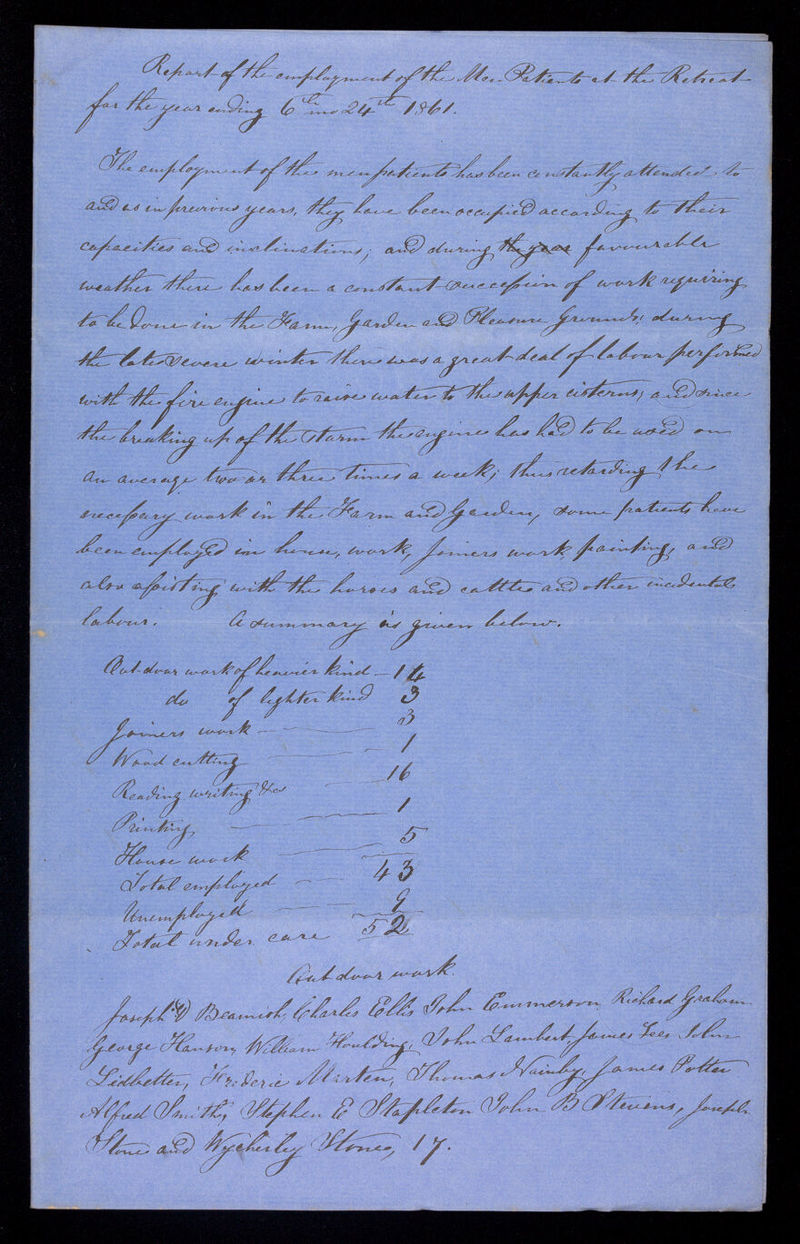 Report of the employment of the Men Patients at the Retreat
for the year ending 6th mo 24th 1861.
The employment of the men patients has been constantly attended to
and as in previous years, they have been occupied according to their
capacities and inclinations; and during the year favourable
weather there has been a constant succession of work requiring
to be done in the Farm, Garden and Pleasure Grounds; during
the late severe winter there was a great deal of labour performed
with the fire engine to raise water to the upper cisterns; and since
the breaking up of the storm the engine has had to be used on
an average two or three times a week; thus retarding the
necessary work in the Farm and Garden, some patients have
been employed in house, work, joiners work, painting, and
also assisting with the horses and cattle and other incidental
labour. A summary is given below.
Out door work of heavier kind – 14
do of lighter kind 3
Joiners work 3
Wood cutting 1
Reading writing &c 16
Printing 1
House work 5
Total employed 43
Unemployed 9
Total under care 52
Out door work.
Joseph Beamish, Charles Ellis John Emmerson Richard Graham
George Hanson, William Houlding, John Lambert, James Lees John
Lidbetter, Frederic Marten, Thomas Nainby, James Potter
Alfred Smith, Stephen E Stapleton John B Stevens, Joseph
Stone and Wycherley Stones, 17.